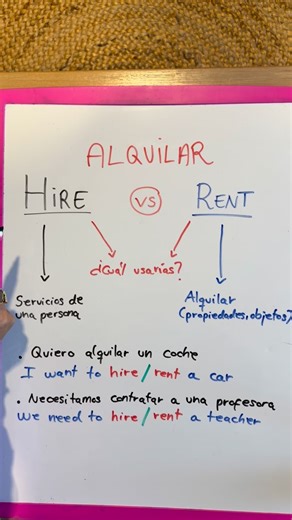 ALQUILAR
HIRE VS RENT
¿Cuál usarías?
Servicios de una persona
Alquilar (propiedades, objetos)
. Quiero alquilar un coche
I want to hire/rent a car
. Necesitamos contratar a una profesora
we need to hire/rent a teacher